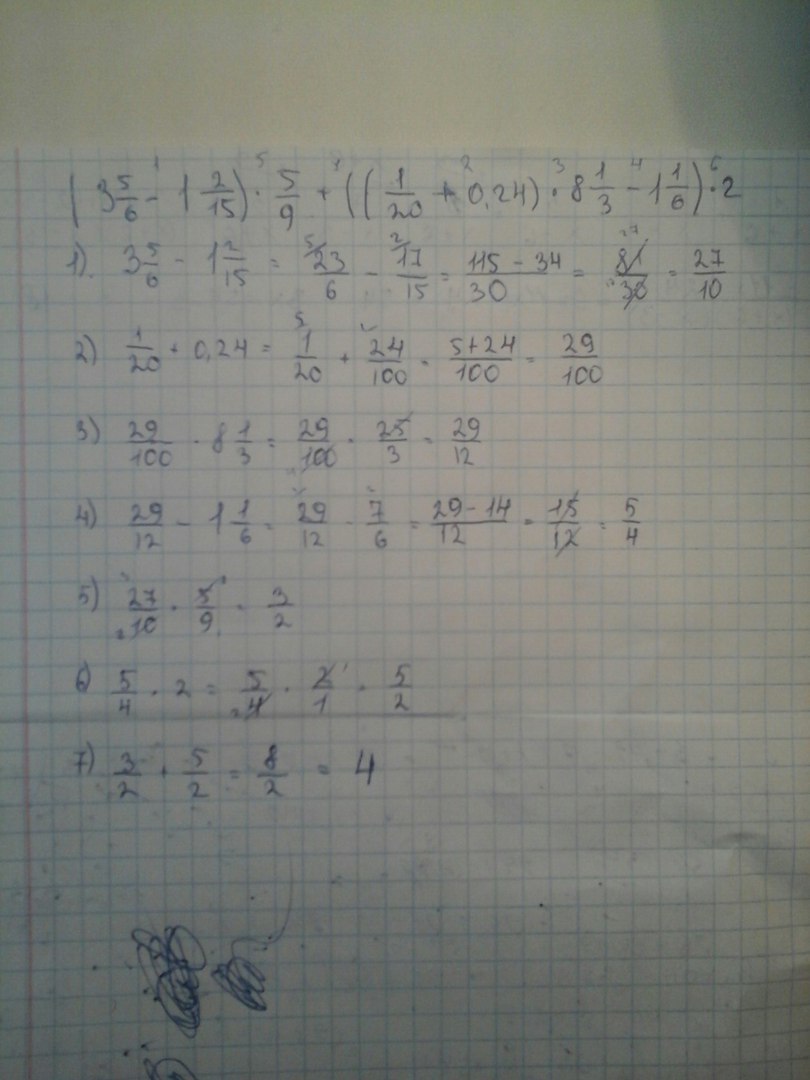 (3 5/6 - 1 2/15) · 5/9 + ((1/20 + 0,24) · 8 1/3 - 1 1/6) · 2
1). 3 5/6 - 1 2/15 = 23/6 - 17/15 = (115 - 34)/30 = 81/30 = 27/10
2) 1/20 + 0,24 = 1/20 + 24/100 = (5+24)/100 = 29/100
3) 29/100 · 8 1/3 = 29/100 · 25/3 = 29/12
4) 29/12 - 1 1/6 = 29/12 - 7/6 = (29 - 14)/12 = 15/12 = 5/4
5) 27/10 · 5/9 = 3/2
6) 5/4 · 2 = 5/4 · 2/1 = 5/2
7) 3/2 + 5/2 = 8/2 = 4